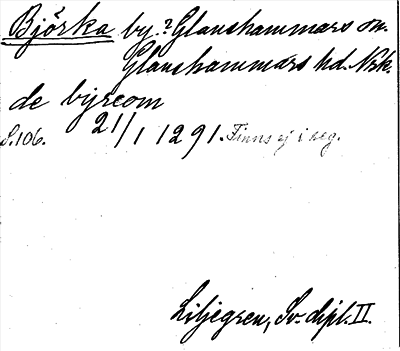 Björka by.? Glanshammars sn.
Glanshammars hd. Nrk.
de byrcom
S.106. 21/1 1291. Finns ej i reg.
Liljegren, Sv. dipl. II.